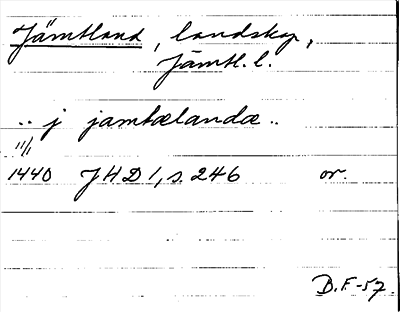 Jämtland, landskap,
Jämtl. l.
.. j jamtælandæ ..
11/1
1440 JHD 1, s 246 or.
B.F-57.